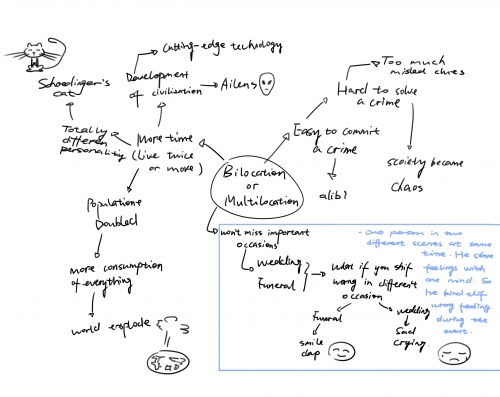 Cutting-edge technology
Development
of civilization
Ailens
Schrodinger's
cat
Totally
differen
personality
More time
(Live twice
or more)
Populatione
Doubled
more consumption
of everything
world explode
Bilocation
or
Multilocation
Easy to commit
a crime
alibi
Hard to solve
a crime
Too much
misled clues
society became
chaos
won't miss important
occasions
wedding
Funeral
what if you shif
wrong in different
occasion
Funeral
smile
clap
wedding
Sad
crying.
· One person in two
different scenes at same
time. He share
feelings with
one mind. So
he kind shif
wrong feeling
during the
event.